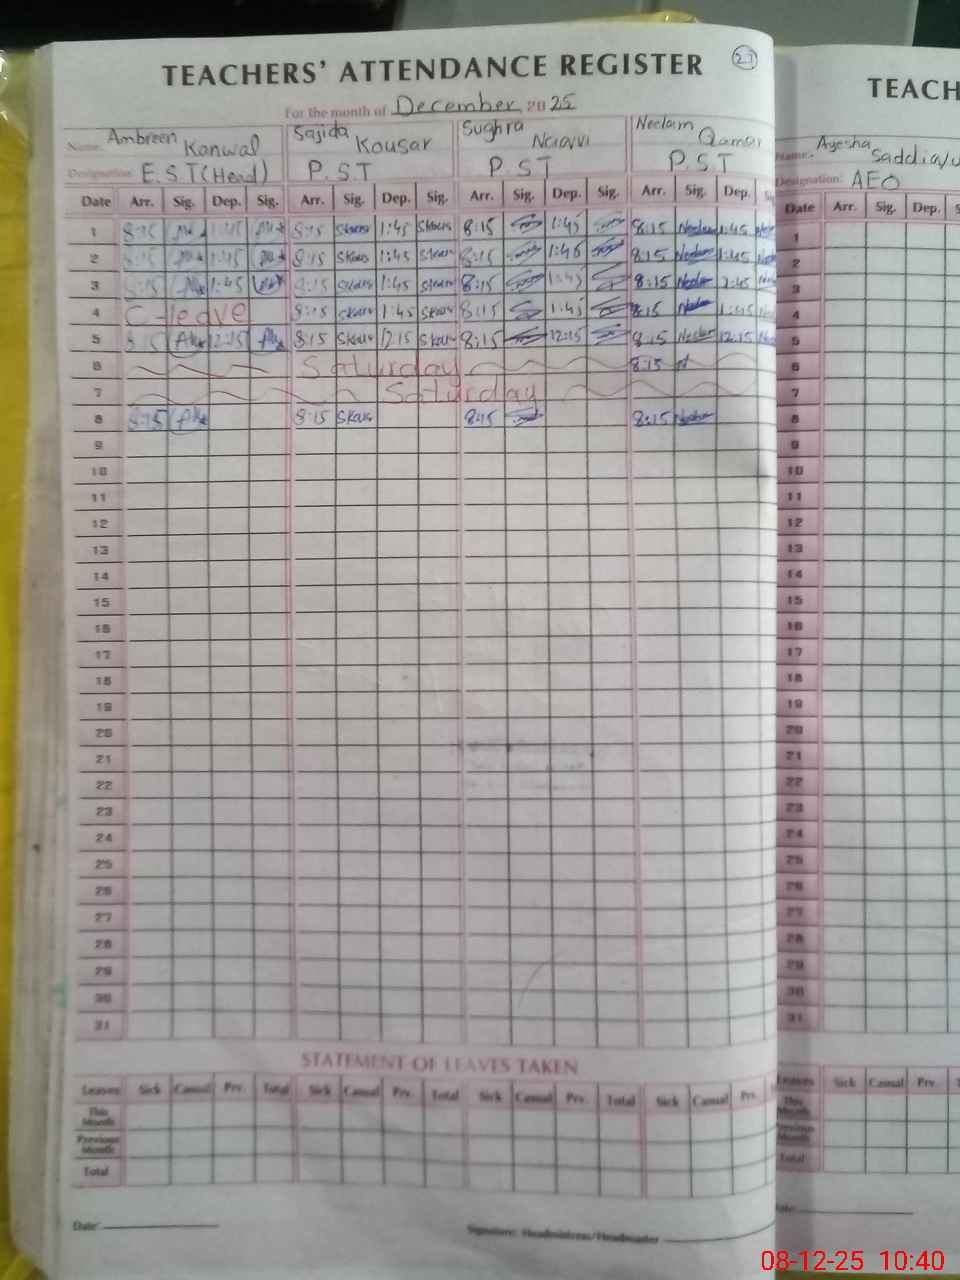 TEACHERS' ATTENDANCE REGISTER 27
For the month of December 2025
Name: Ambreen Kanwal Sajida Kousar Sughra Neelam
Designation: E.S.T(Head) P.S.T P.S.T P.S.T
Date Arr. Sig. Dep. Sig. Arr. Sig. Dep. Sig. Arr. Sig. Dep. Sig. Arr. Sig. Dep.
1 8:15 1:45 8:15 Skous 1:45 Skous 8:15 1:45 8:15 Neelam 1:45
2 8:15 1:45 8:15 Skous 1:45 Skous 8:15 1:45 8:15 Neelam 1:45
3 8:15 1:45 8:15 Skous 1:45 Skous 8:15 1:45 8:15 Neelam 1:45
4 C-leave 8:15 Skous 1:45 Skous 8:15 1:45 8:15 Neelam 1:45
5 8:15 12:15 8:15 Skous 12:15 Skous 8:15 12:15 8:15 Neelam 12:15
6 Saturday 8:15
7 Saturday
8 8:15 8:15 Skous 8:15 8:15 Neelam
9
10
11
12
13
14
15
16
17
18
19
20
21
22
23
24
25
26
27
28
29
30
31
STATEMENT OF LEAVES TAKEN
Leaves Sick Casual Prv. Total Sick Casual Prv. Total Sick Casual Prv. Total Sick Casual Prv.
This Month
Previous Month
Total
Date:
Signature: Headmistress/Headmaster
TEACH
Name: Ayesha
Designation: AEO
Date Arr. Sig. Dep.
1
2
3
4
5
6
7
8
9
10
11
12
13
14
15
16
17
18
19
20
21
22
23
24
25
26
27
28
29
30
31
Leaves Sick Casual Prv.
This Month
Previous Month
Total
08-12-25 10:40